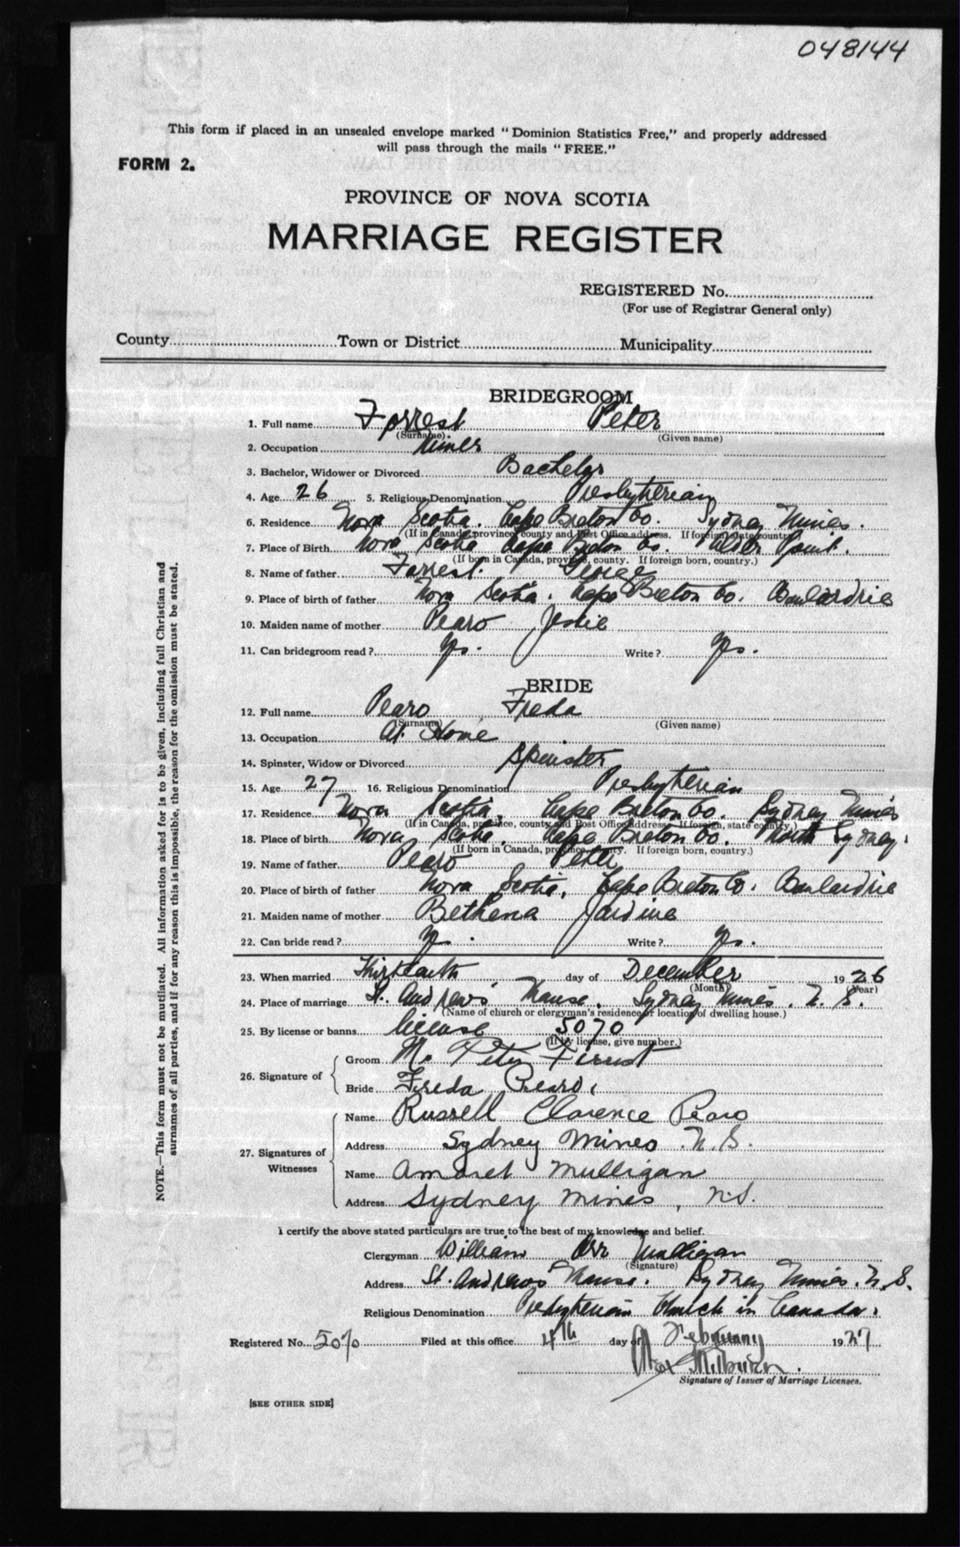 048144
This form if placed in an unsealed envelope marked "Dominion Statistics Free," and properly addressed
will pass through the mails "FREE."
FORM 2.
PROVINCE OF NOVA SCOTIA
MARRIAGE REGISTER
REGISTERED No.
(For use of Registrar General only)
County Town or District Municipality
BRIDEGROOM
1. Full name Forrest Peter
(Surname) (Given name)
2. Occupation Miner
3. Bachelor, Widower or Divorced Bachelor
4. Age 26 5. Religious Denomination Presbyterian
6. Residence Nova Scotia. Cape Breton Co. Sydney Mines.
(If in Canada, province, county and Post Office address. If foreign, state country.)
7. Place of Birth Nova Scotia Cape Breton Co. Point.
(If born in Canada, province, county. If foreign born, country.)
8. Name of father Forrest. George
9. Place of birth of father Nova Scotia. Cape Breton Co. Boulardrie
10. Maiden name of mother Pearo Jessie
11. Can bridegroom read? Yes. Write? Yes.
BRIDE
12. Full name Pearo Freda
(Surname) (Given name)
13. Occupation At Home
14. Spinster, Widow or Divorced Spinster
15. Age 27 16. Religious Denomination Presbyterian
17. Residence Nova Scotia, Cape Breton Co. Sydney Mines
(If in Canada, province, county and Post Office address. If foreign, state country.)
18. Place of birth Nova Scotia, Cape Breton Co. North Sydney.
(If born in Canada, province, county. If foreign born, country.)
19. Name of father Pearo Peter
20. Place of birth of father Nova Scotia, Cape Breton Co. Boulardrie
21. Maiden name of mother Bethena Jardine
22. Can bride read? Y. Write? Yes.
23. When married Thirtieth day of December 1926
(Month) (Year)
24. Place of marriage St. Andrew's Manse, Sydney Mines. N. S.
(Name of church or clergyman's residence or location of dwelling house.)
25. By license or banns license 5070
(If by license, give number.)
26. Signature of Groom Mr Peter Forrest
Bride Freda Pearo.
27. Signatures of Witnesses Name Russell Clarence Pearo
Address Sydney Mines N. S.
Name Amoret Mulligan
Address Sydney Mines, N.S.
I certify the above stated particulars are true to the best of my knowledge and belief.
Clergyman William Orr Mulligan
(Signature)
Address St. Andrew's Manse. Sydney Mines. N. S.
Religious Denomination Presbyterian Church in Canada.
Registered No. 5070 Filed at this office 4th day of February 1927
Signature of Issuer of Marriage Licenses.
[SEE OTHER SIDE]
NOTE.—This form must not be mutilated. All information asked for is to be given, including full Christian and
surnames of all parties, and if for any reason this is impossible, the reason for the omission must be stated.